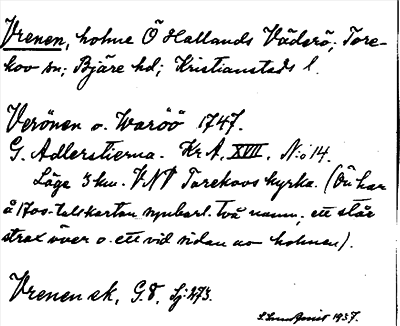 Vrenen, holme Ö Hallands Väderö; Tore-
kov sn; Bjäre hd; Kristianstads l.
Verönen o. Waröö 1747.
G. Adlerstierna. Kr A, XVII, N:o 14.
Läge 3 km. VNV Torekovs kyrka. (Ön har
å 1700-talskartan synbarl. två namn; ett står
strax över o. ett vid sidan av holmen).
Vrenen sk, G.8, Sj:273.
1937.